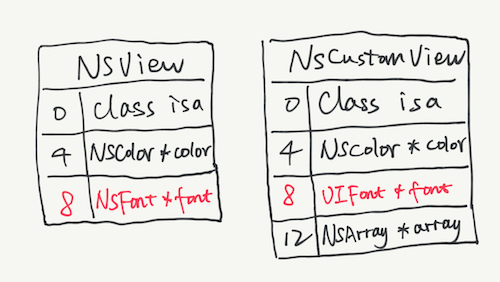 NSView
0 Class isa
4 NSColor * color
8 NSFont * font
NSCustomView
0 Class isa
4 NSColor * color
8 UIFont * font
12 NSArray * array